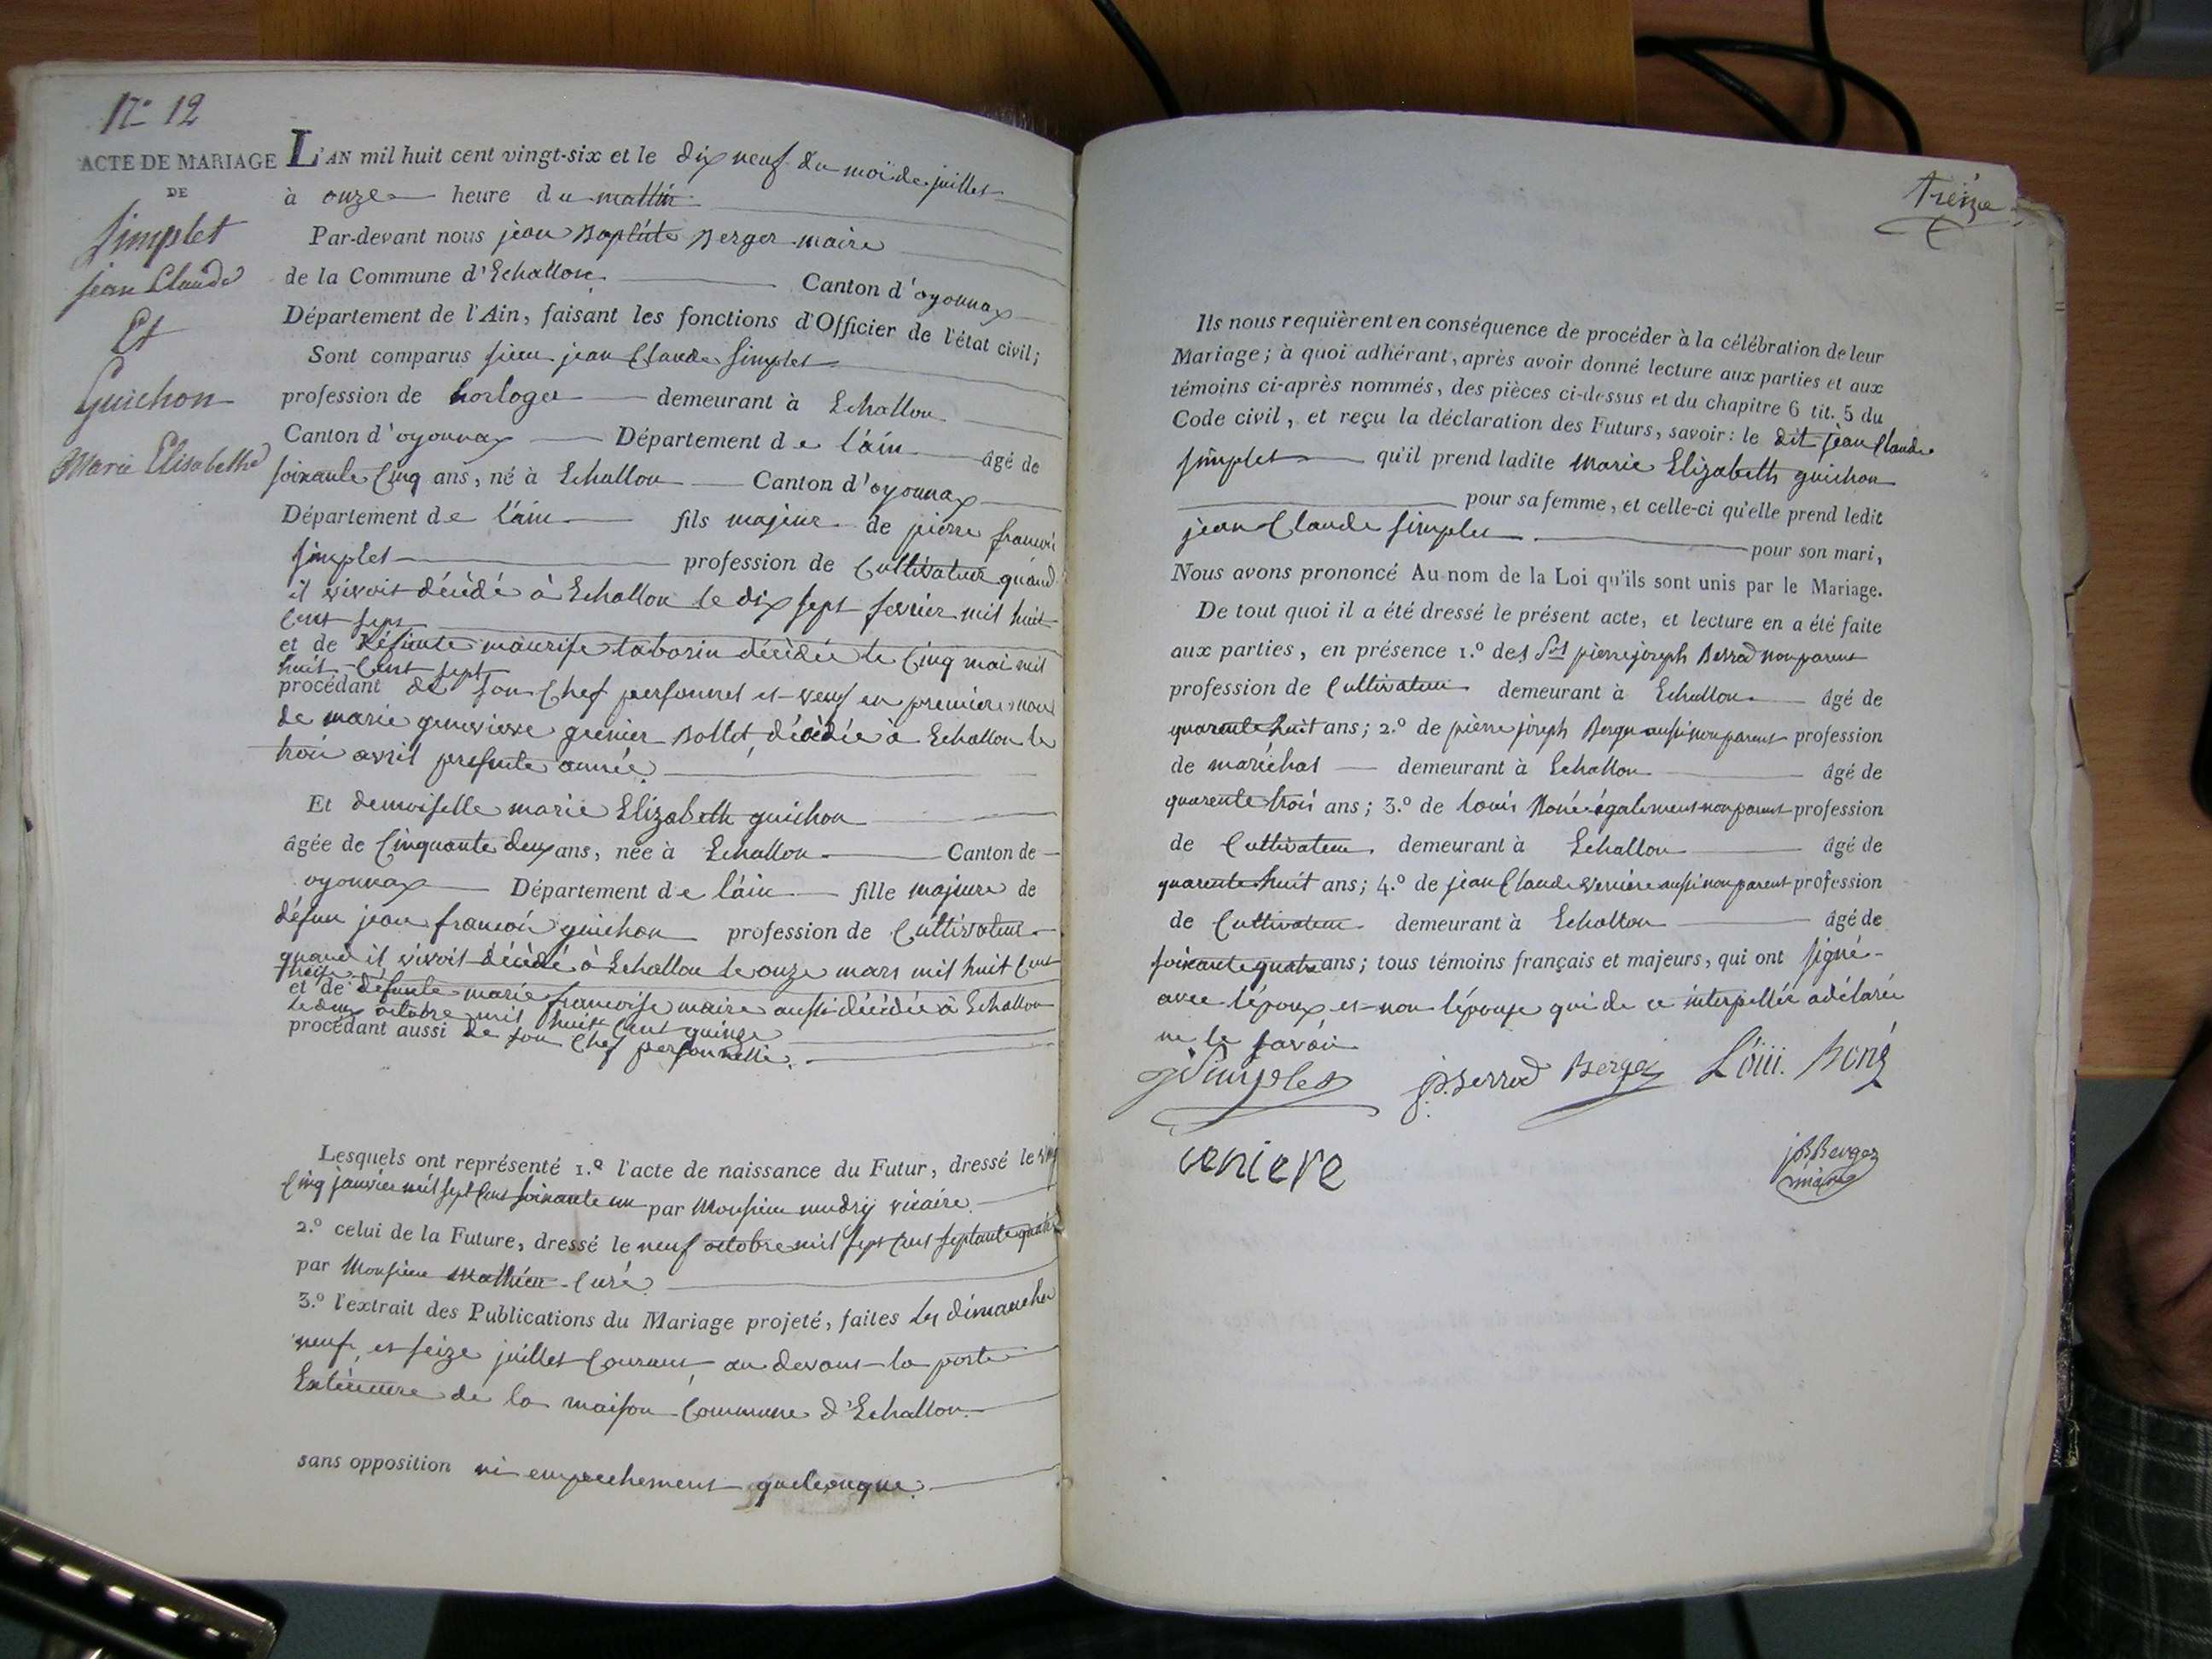 N.° 12
ACTE DE MARIAGE
DE
Simplet
jean Claude
Et
Guichon
Marie Elisabethe
L'AN mil huit cent vingt-six et le dix neuf du moi de juillet
à onze heure du mattin
Par-devant nous jean Baptiste Berger maire
de la Commune d'Echallon Canton d'oyonnax
Département de l'Ain, faisant les fonctions d'Officier de l'état civil;
Sont comparus sieur jean Claude Simplet
profession de horloger demeurant à Echallon
Canton d'oyonnax Département de l'ain âgé de
soixante Cinq ans, né à Echallon Canton d'oyonnax
Département de l'ain fils majeur de pierre francoi
simplet profession de Cultivateur quand
il vivoit décédé à Echallon le dix sept fevrier mil huit
Cent sept
et de défunte maurise tabarin décédée le Cinq mai mil
huit Cent sept
procédant de son Chef personnel et veuf en premiere noce
de marie genevieve grenier Bollet, décédée à Echallon le
troi avril presente année.
Et demoiselle marie Elizabeth guichon
âgée de Cinquante deux ans, née à Echallon Canton de
oyonnax Département de l'ain fille majeure de
défun jean francoi guichon profession de Cultivateur
quand il vivoit décédé à Echallon le onze mars mil huit Cent
treize
et de défunte marie francoise maire aussi décédée à Echallon
le deux octobre mil huit Cent quinze
procédant aussi de son Chef personnelle.
Lesquels ont représenté 1.° l'acte de naissance du Futur, dressé le vingt
Cinq janvier mil sept Cent soixante un par Monsieur mudry vicaire.
2.° celui de la Future, dressé le neuf octobre mil sept Cent septante quatre
par Monsieur Mathieu Curé.
3.° l'extrait des Publications du Mariage projeté, faites les dimanches
neuf et seize juillet Courant, au devant la porte
Extérieure de la maison Commune d'Echallon.
sans opposition ni empechement quelconque.
treize
Ils nous requièrent en conséquence de procéder à la célébration de leur
Mariage; à quoi adhérant, après avoir donné lecture aux parties et aux
témoins ci-après nommés, des pièces ci-dessus et du chapitre 6 tit. 5 du
Code civil, et reçu la déclaration des Futurs, savoir: le dit jean Claude
simplet qu'il prend ladite Marie Elizabeth guichon
pour sa femme, et celle-ci qu'elle prend ledit
jean Claude simplet pour son mari,
Nous avons prononcé Au nom de la Loi qu'ils sont unis par le Mariage.
De tout quoi il a été dressé le présent acte, et lecture en a été faite
aux parties, en présence 1.° des Srs pierre joseph Berrod non parent
profession de Cultivateur demeurant à Echallon âgé de
quarente huit ans; 2.° de pierre joseph Berger aussi non parent profession
de maréchal demeurant à Echallon âgé de
quarente troi ans; 3.° de louis Boné également non parent profession
de Cultivateur demeurant à Echallon âgé de
quarente huit ans; 4.° de jean Claude verniere aussi non parent profession
de Cultivateur demeurant à Echallon âgé de
soixante quatre ans; tous témoins français et majeurs, qui ont signé
avec l'époux et non l'épouse qui de ce interpellée a déclarée
ne le savoir
Simplet pJ Berrod Berger Loüi. Boné
veniere
jB Berger
maire